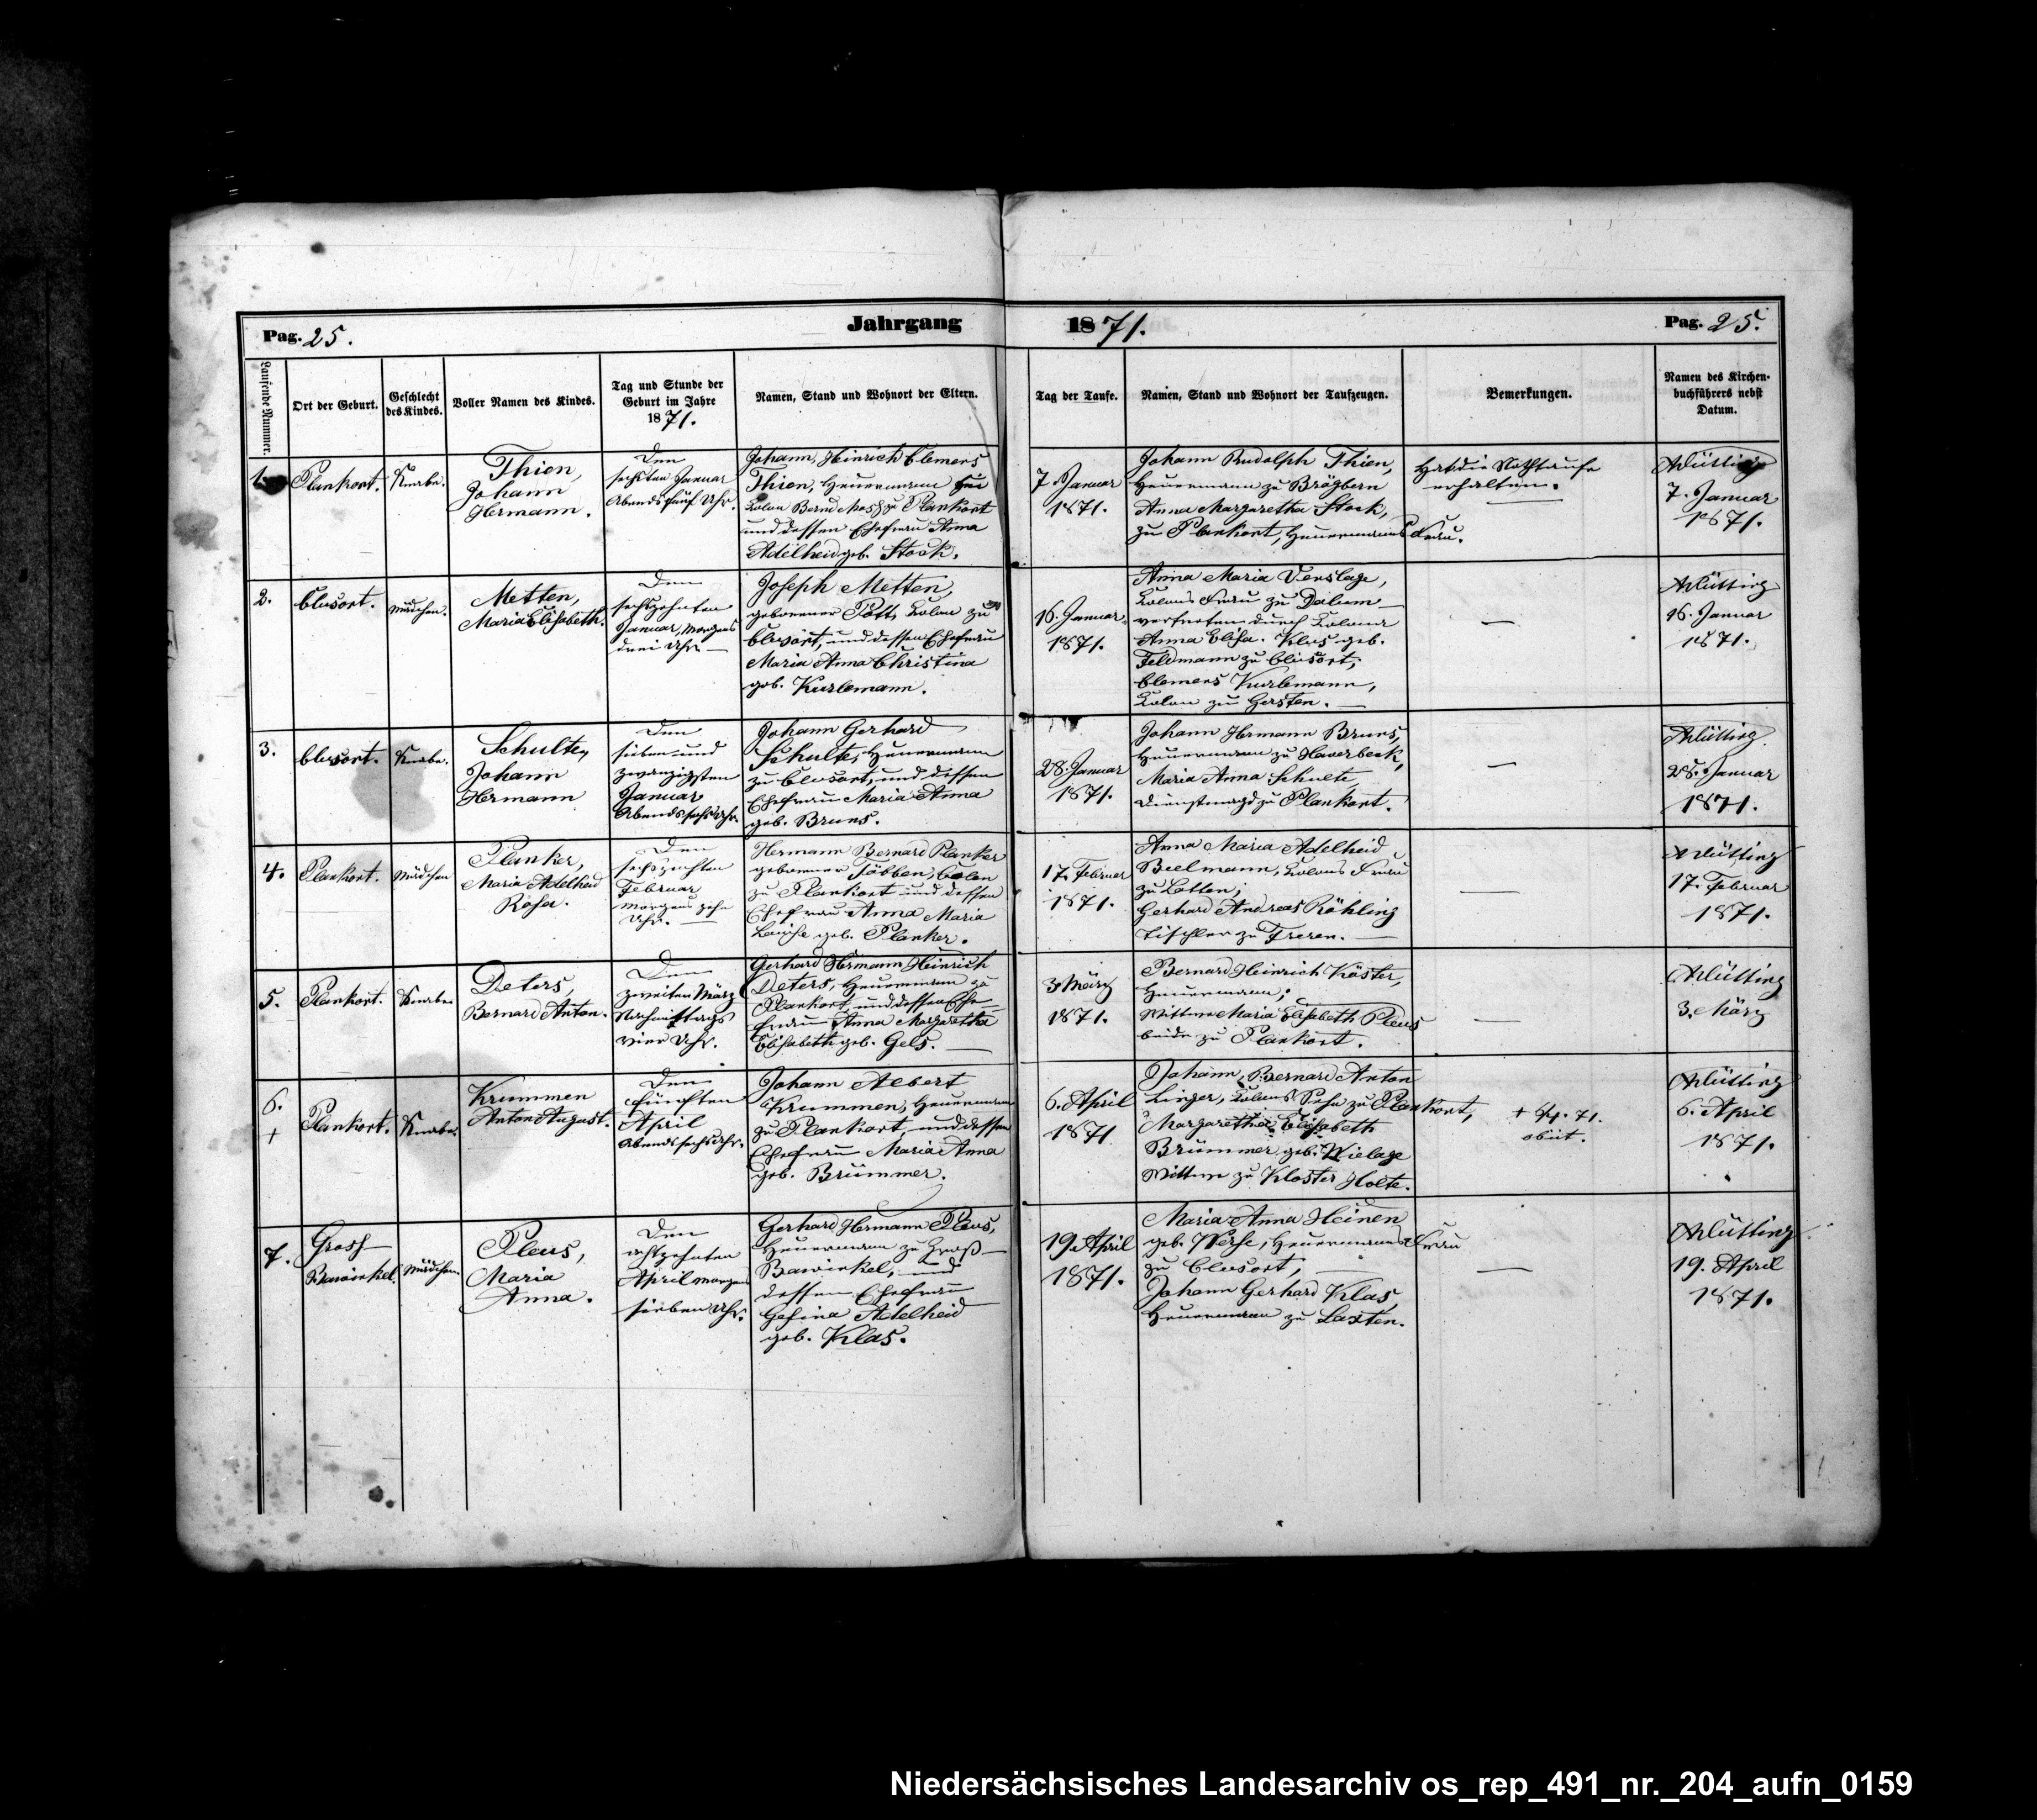 Pag. 25.
Jahrgang 1871.
Pag. 25.
Laufende Nummer.
Ort der Geburt.
Geschlecht
des Kindes.
Voller Namen des Kindes.
Tag und Stunde der
Geburt im Jahre
1871.
Namen, Stand und Wohnort der Eltern.
Tag der Taufe.
Namen, Stand und Wohnort der Taufzeugen.
Bemerkungen.
Namen des Kirchen-
buchführers nebst
Datum.
1.
Plankort.
Knabe.
Thien,
Johann
Hermann.
Den
sechsten Januar
Abends fünf Uhr.
Johann, Heinrich Clemens
Thien, Heuermann bei
Kolon Bernd zu Plankort
und dessen Ehefrau Anna
Adelheid geb. Stock.
7. Januar
1871.
Johann Rudolph Thien,
Heuermann zu Brögbern
Anna Margaretha Stock,
zu Plankort, Heuermanns Frau.
Hat die Nothtaufe
erhalten.
7. Januar
1871.
2.
Clusort.
Mädchen.
Metten,
Maria Elisabeth.
Den
sechszehnten
Januar, Morgens
drei Uhr.
Joseph Metten,
geborener Pott, Kolon zu
Clusort, und dessen Ehefrau
Maria Anna Christina
geb. Kurlemann.
16. Januar
1871.
Anna Maria Verslage,
Kolons Frau zu Dalum
vertreten durch Kolona
Anna Elisa. Klus geb.
Feldmann zu Clusort,
Clemens Kurlemann,
Kolon zu Gersten.
—
Mütting
16. Januar
1871.
3.
Clusort.
Knabe.
Schulte,
Johann
Hermann
Den
sieben und
zwanzigsten
Januar
Abends sechs Uhr.
Johann Gerhard
Schulte, Heuermann
zu Clusort, und dessen
Ehefrau Maria Anna
geb. Bruns.
28. Januar
1871.
Johann Hermann Bruns,
Heuermann zu Haverbeck,
Maria Anna Schulte
Dienstmagd zu Plankort.
—
Mütting.
28. Januar
1871.
4.
Plankort.
Mädchen
Planker,
Maria Adelheid
Rosa.
Den
sechszehnten
Februar
Morgens zehn
Uhr.
Hermann Bernard Planker
geborener Többen, Colon
zu Plankort und dessen
Ehefrau Anna Maria
Louise geb. Planker.
17. Februar
1871.
Anna Maria Adelheid
Beelmann, Kolons Frau
zu Lotten;
Gerhard Andreas Röhling
Tischler zu Freren.
—
Mütting
17. Februar
1871.
5.
Plankort.
Knabe
Deters,
Bernard Anton.
Den
zweiten März
Nachmittags
vier Uhr.
Gerhard Hermann Heinrich
Deters, Heuermann zu
Plankort, und dessen Ehe-
frau Anna Margaretha
Elisabeth geb. Gels.
3. März
1871.
Bernard Heinrich Köster,
Heuermann;
Wittwe Maria Elisabeth Pleus
beide zu Plankort.
—
Mütting
3. März
6.
+
Plankort.
Knabe.
Krummen
Anton August.
Den
fünften
April
Abends sechs Uhr.
Johann Albert
Krummen, Heuermann
zu Plankort, und dessen
Ehefrau Maria Anna
geb. Brümmer.
6. April
1871
Johann, Bernard Anton
Linger, Kolons Sohn zu Plankort,
Margaretha Elisabeth
Brümmer, geb. Wielage
Wittwe zu Kloster Holte.
obiit.
Mütting
6. April
1871.
7.
Gross-
Bawinkel.
Mädchen
Pleus,
Maria
Anna.
Den
achtzehnten
April Morgens
sieben Uhr.
Gerhard Hermann Pleus,
Heuermann zu Groß-
Bawinkel, und
dessen Ehefrau
Gesina Adelheid
geb. Klas.
19. April
1871.
Maria Anna Heinen
geb. Werse, Heuermanns Frau
zu Clusort,
Johann Gerhard Klas,
Heuermann zu Laxten.
—
Mütting
19. April
1871.
Niedersächsisches Landesarchiv os_rep_491_nr._204_aufn_0159